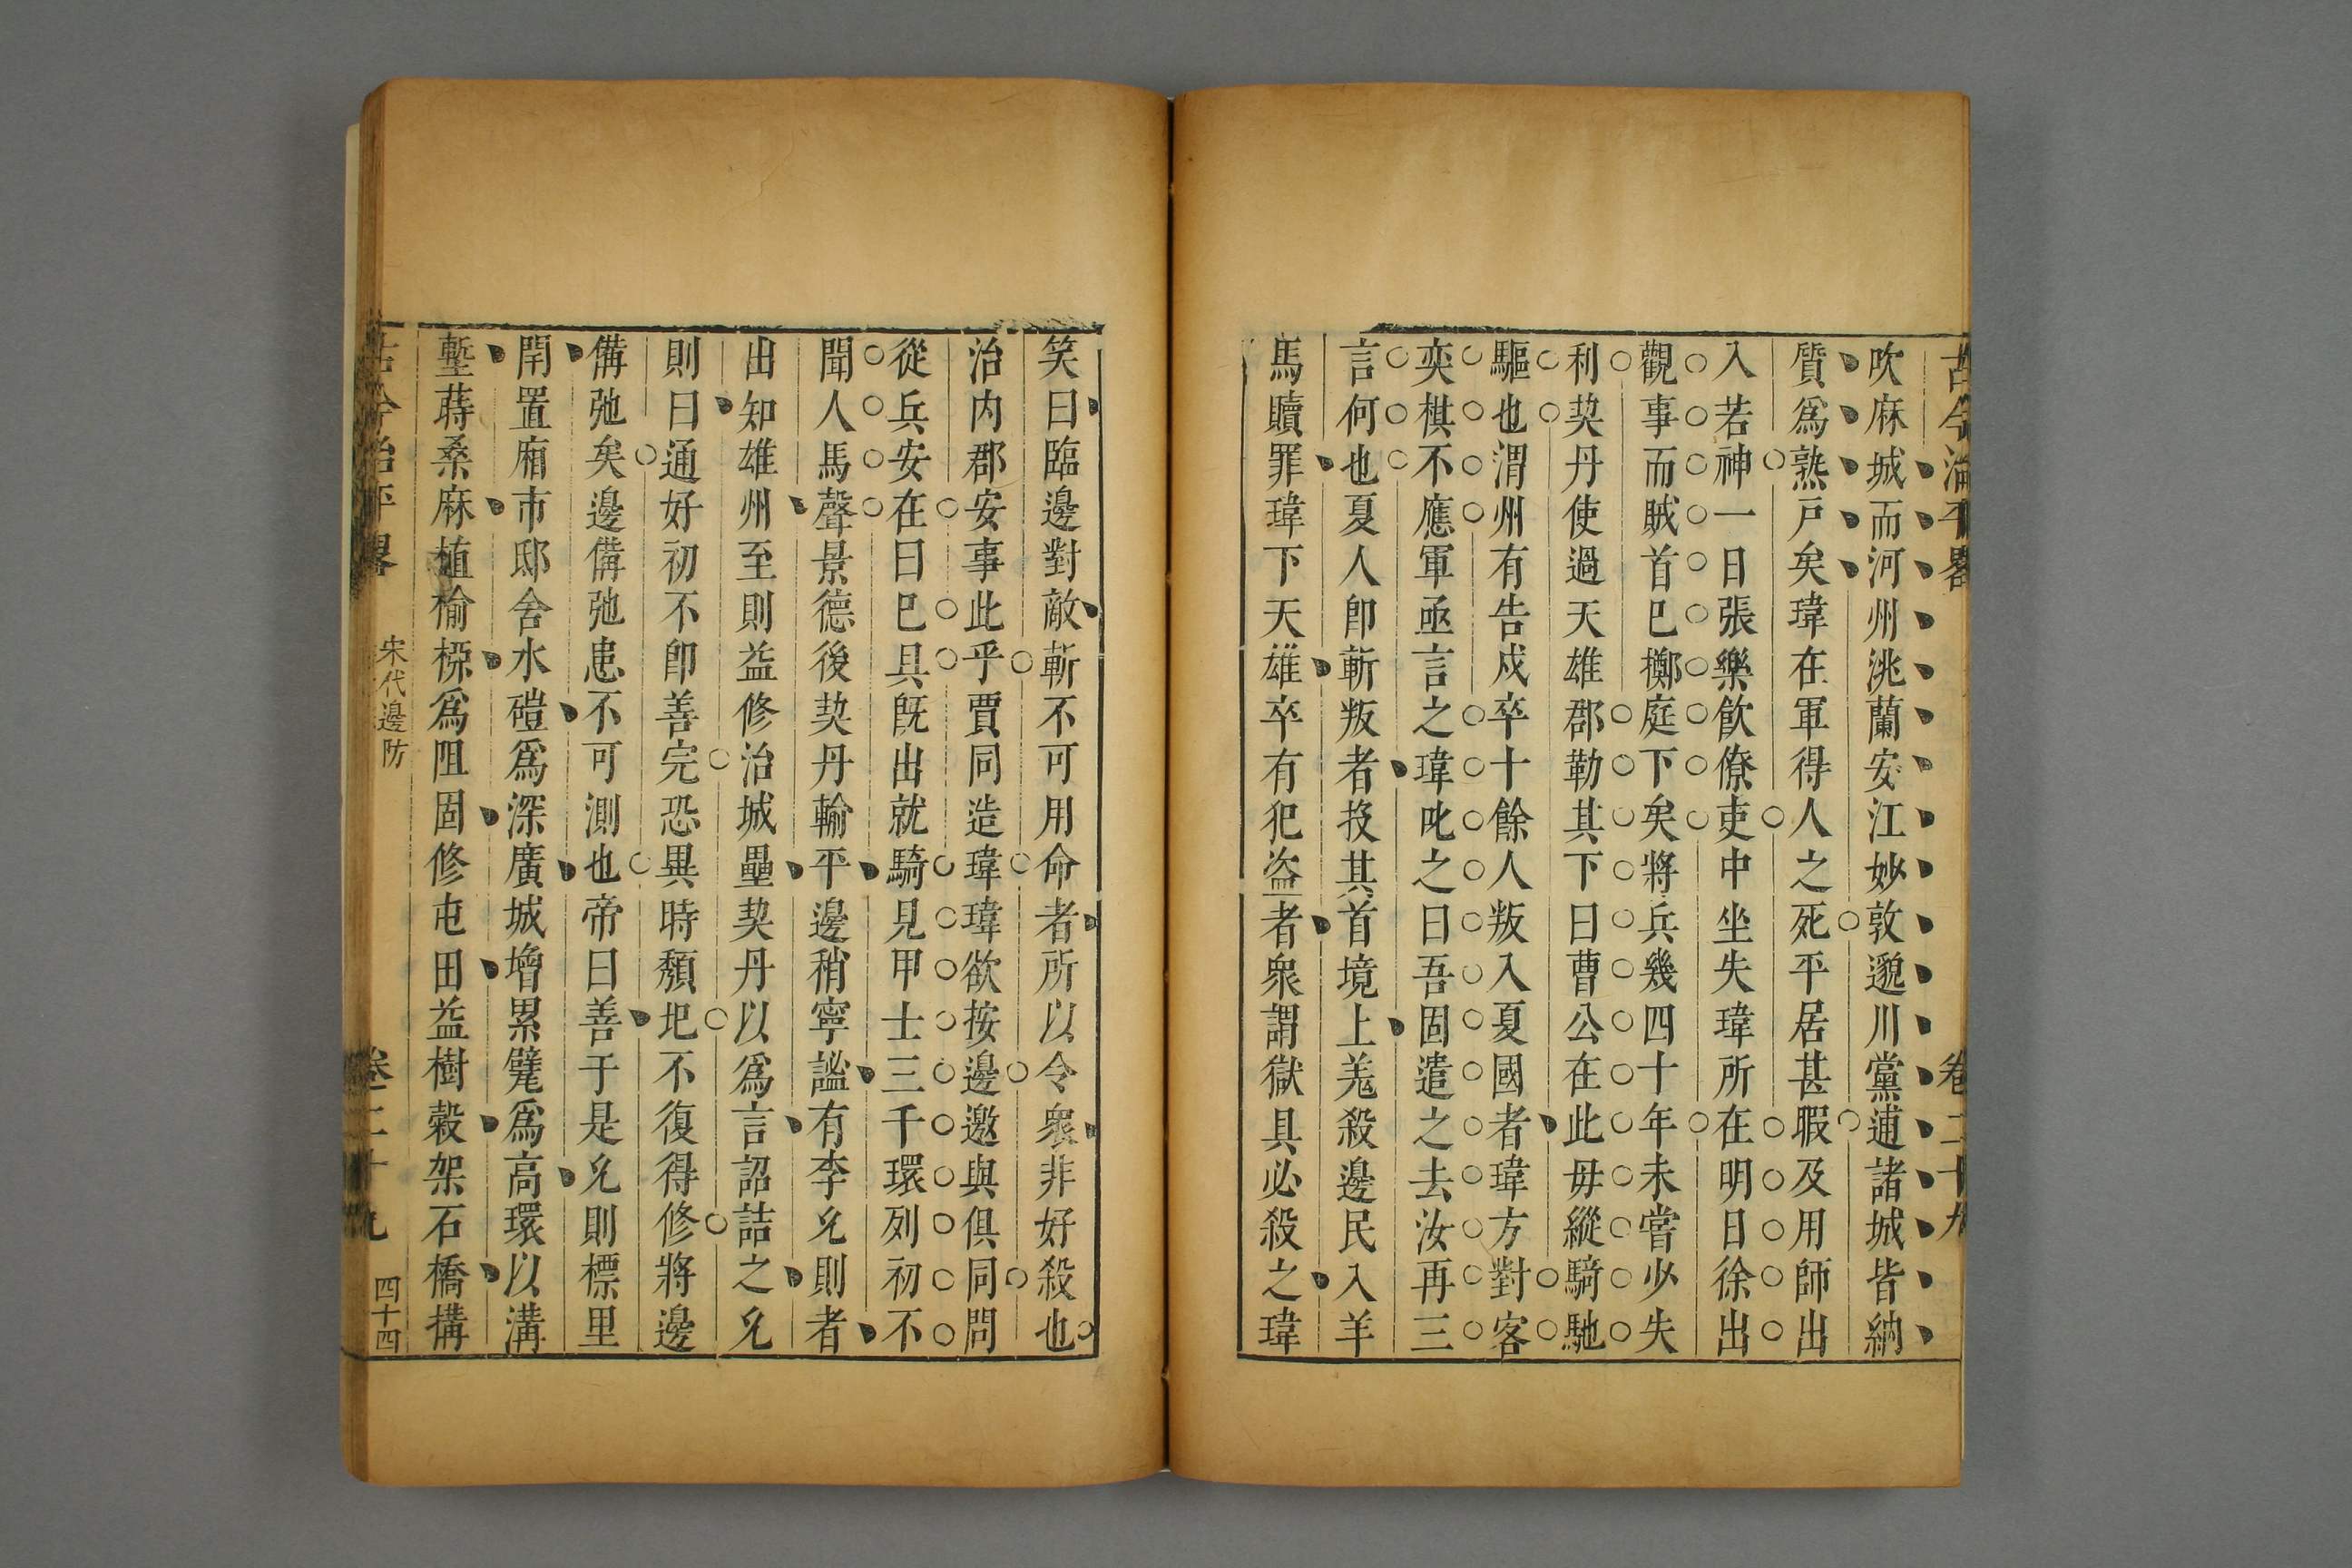 古今治平畧 卷二十九
吹麻城而河州洮蘭安江妙敦邈川黨逋諸城皆納
質爲熟戸矣瑋在軍得人之死平居甚暇及用師出
入若神一日張樂飲僚吏中坐失瑋所在明日徐出
觀事而賊首已擲庭下矣將兵幾四十年未嘗少失
利契丹使過天雄郡勒其下曰曹公在此毋縱騎馳
驅也渭州有告戍卒十餘人叛入夏國者瑋方對客
奕棋不應軍亟言之瑋叱之曰吾固遣之去汝再三
言何也夏人卽斬叛者投其首境上羗殺邊民入羊
馬贖罪瑋下天雄卒有犯盜者衆謂獄具必殺之瑋
笑曰臨邊對敵斬不可用命者所以令衆非好殺也
治内郡安事此乎賈同造瑋瑋欲按邊邀與俱同問
從兵安在曰已具旣出就騎見甲士三千環列初不
聞人馬聲景德後契丹輸平邊稍寧謐有李允則者
出知雄州至則益修治城壘契丹以爲言詔詰之允
則曰通好初不卽善完恐異時頽圯不復得修將邊
備弛矣邊備弛患不可測也帝曰善于是允則標里
閈置廂市邸舍水磑爲深廣城增累甓爲高環以溝
塹蒔桑麻植榆㮚爲阻固修屯田益樹穀架石橋搆
古今治平畧 宋代邊防 卷二十九 四十四